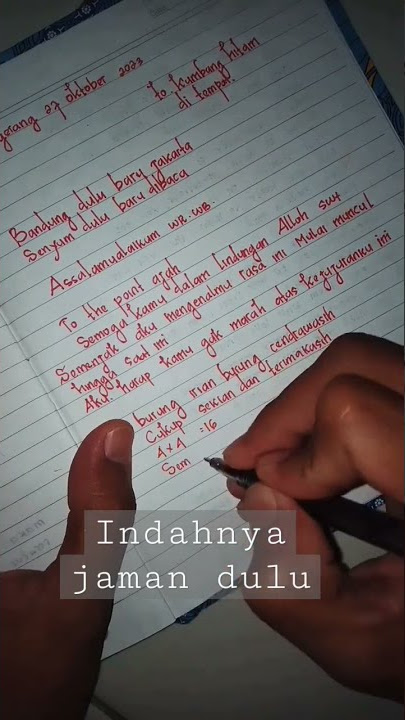 27 Oktober 2023
to kumbang hitam
di tempat
Bandung dulu baru jakarta
Senyum dulu baru dibaca
Assalamualaikum WR. WB.
To the point ajah
Semoga kamu dalam lindungan Alloh swt
Sementak aku mengenalmu rasa ini Mulai muncul
hingga saat ini
Aku harap kamu gak marah atas kejujuranku ini
burung irian burung cendrawasih
Cukup sekian dan terimakasih
4 x 4 = 16
Sem
Indahnya
jaman dulu